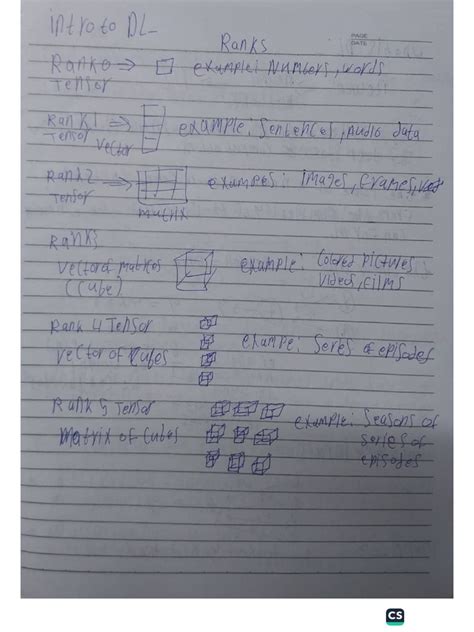 intro to DL
PAGE
DATE
Ranks
Rank 0 => example: Numbers, words
Tensor
Rank 1 => example: Sentences, Audio data
Tensor
Vector
Rank 2 => exampes: images, frames,
Tensor
matrix
Rank3
Vector of matrices example: Colored Pictures
(Cube) Videos, Films
Rank 4 Tensor
Vector of Cubes example: Series of episodes
Rank 5 Tensor example: Seasons of
Matrix of Cubes series of
episodes
CS